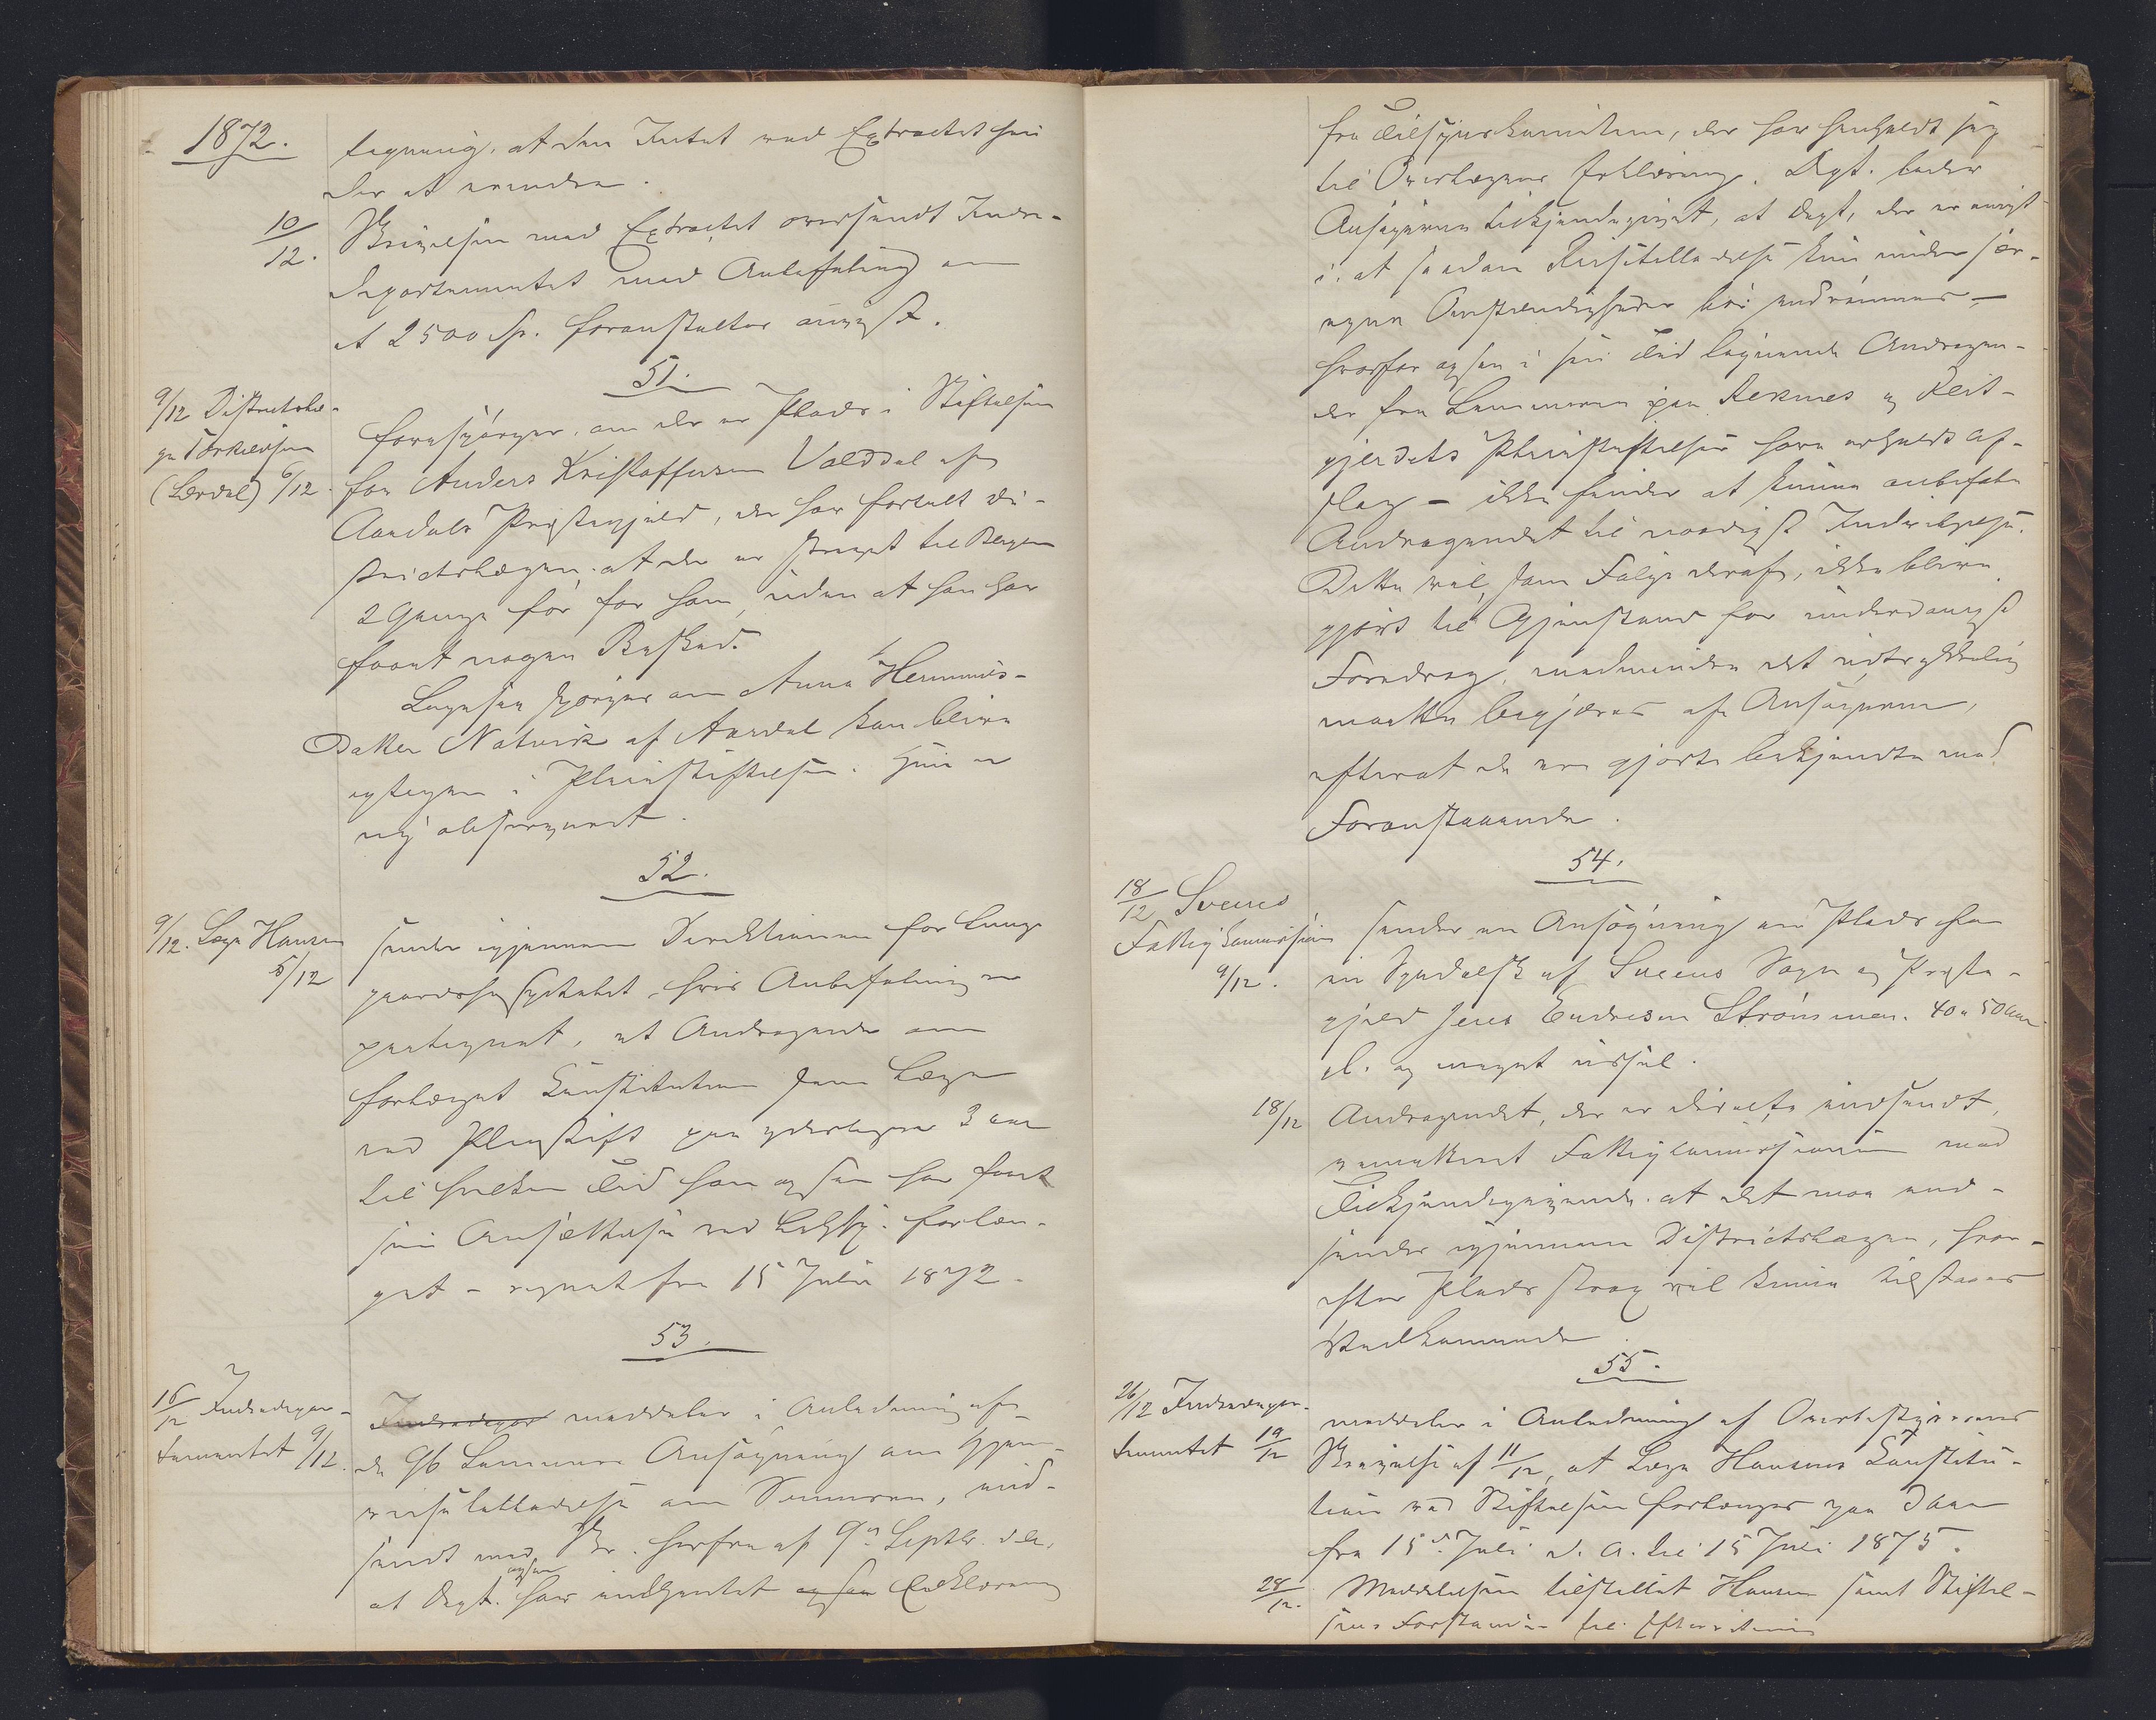 1872.
tegning, at den Intet ved Extractet fin
der at erindre.
10/12. Skrivelsen med Extractet oversendt Indre-
departementet med Anbefaling om
at 2500 Sp. foranstaltes anvist.
51.
9/12 Districtslæ-
ge Torkildsen
(Lærdal) 6/12.
forespørger, om der er Plads i Stiftelsen
for Anders Kristoffersen Valddal af
Aardals Præstegjeld, der har fortalt Di-
strictslægen at der er skrevet til Bergen
2 Gange før for ham, uden at han har
faaet nogen Besked.
Ligesaa spørges om Anna Hermunds-
datter Natvik af Aardal kan blive
optagen i Pleiestiftelsen. Hun er
ny observeret.
52.
9/12. Læge Hansen
5/12
sender igjennem Direktionen for Lunge-
gaardshospitalet, hvis Anbefaling er
paategnet, et Andragende om
forlænget Konstitution som Læge
ved Pleiestift paa yderligere 3 aar
til hvilken Tid han ogsaa har faaet
sin Ansættelse ved Lghsp. forlæn-
get - regnet fra 15 Juli 1872.
53.
16/12 Indredepar-
tementet 9/12.
Indredepar meddeler i Anledning af
de 96 Lemmers Ansøgning om Gjen-
visitilladelse om Sommeren, ind-
sendt med Skr. herfra af 9n Septbr. d.A.
at Dept. har ogsaa indhentet ogsaa Erklæring
fra Tilsynskomiteen, der har henholdt sig
til Overlægens Erklæring. Dept. beder
Ansøgerne tilkjendegivet, at Dept, der er enigt
i, at saadan Reisetilladelse kun under sær-
egne Omstændigheder bør indrømmes -
hvorfor ogsaa i sin Tid lignende Andragen-
der fra Lemmerne paa Reknes og Reit-
gjerdets Pleiestiftelser have erholdt Af-
slag - ikke finder at kunne anbefale
Andragendet til naadigst Indvilgelse.
Dette vil, som Følge deraf, ikke blive
gjort til Gjenstand for underdanigst
Foredrag, medmindre det udtrykkelig
maatte begjæres af Ansøgerne,
efterat de ere gjorte bekjendte med
Foranstaaende.
54.
18/12 Sveens
Fattigkommission
9/12.
sender en Ansøgning om Plads for
en Spedalsk af Sveens Sogn og Præste-
gjeld Jens Endresen Strømmen. 40 a 50 aar
gl. og meget ussel.
18/12 Andragendet, der er directe indsendt,
remitteret Fattigcommissionen med
Tilkjendegivende, at det maa ind-
sendes igjennem Districtslægen, hvor-
efter Plads strax vil kunne tilstaaes
Vedkommende.
55.
26/12 Indredepar-
tementet 19/12
meddeler i Anledning af Overbestyrerens
Skrivelse af 11/12, at Læge Hansens Konstitu-
tion ved Stiftelsen forlænges paa 3 aar
fra 15d. Juli d. A. til 15 Juli 1875.
28/12. Meddelelsen tilstillet Hansen samt Stiftel-
sens Forstander til Efterretning